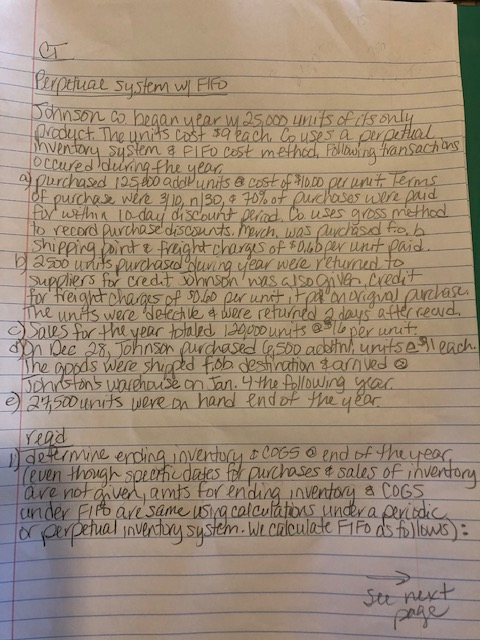 CI
Perpetual system w/ FIFO
Johnson co began year w/ 25,000 units of its only
product. The units cost $9 each. Co uses a perpetual
inventory system & FIFO cost method. Following transactions
occured during the year.
a) purchased 125,000 addtl units @ cost of $10.00 per unit. Terms
of purchase were 3/10, n/30, & 70% of purchases were paid
for within 10-day discount period. Co uses gross method
to record purchase discounts. Merch. was purchased f.o.b
shipping point & freight charges of $0.60 per unit paid.
b) 2500 units purchased during year were returned to
suppliers for credit. Johnson was also given credit
for freight charges of $0.60 per unit it pd on original purchase.
The units were defective & were returned 2 days after recvd.
c) Sales for the year totaled 120,000 units @ $16 per unit.
d) On Dec 28, Johnson purchased 6,500 addtnl units @ $11 each.
The goods were shipped f.o.b destination & arrived @
Johnston's warehouse on Jan. 4 the following year.
e) 27,500 units were on hand end of the year.
req'd
1) determine ending inventory & COGS @ end of the year
(even though specific dates for purchases & sales of inventory
are not given, amts for ending inventory & COGS
under FIFO are same using calculations under a periodic
or perpetual inventory system. We calculate FIFO as follows):
→
See next
page